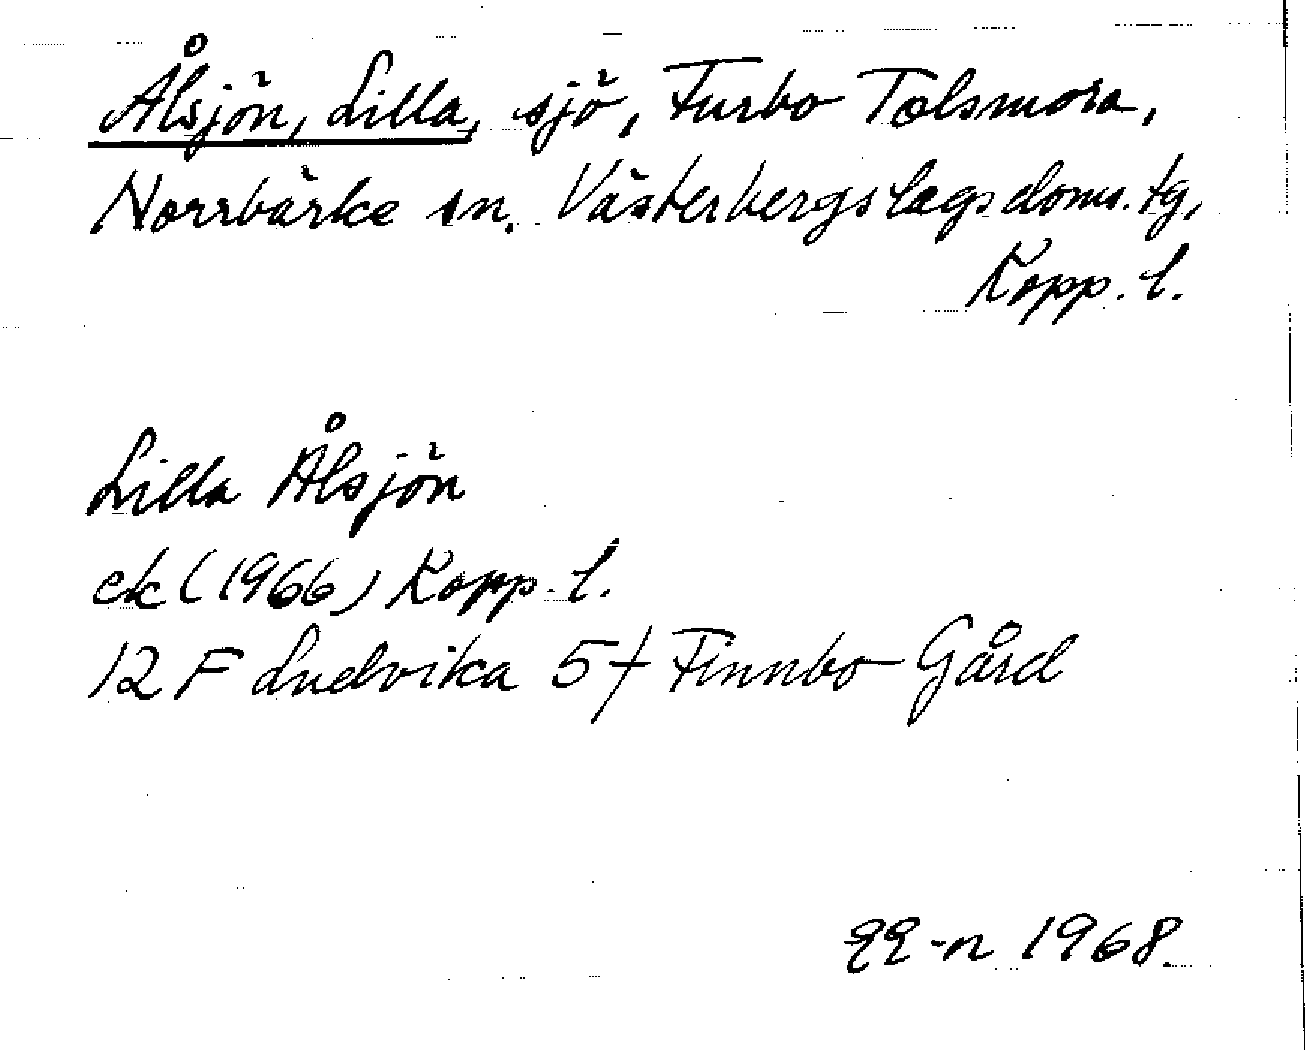 Ålsjön, Lilla, sjö, Furbo Tolsmora,
Norrbärke sn. Västerbergslags doms. tg,
Kopp. l.
Lilla Ålsjön
ek (1966) Kopp. l.
12 F Ludvika 5 f Finnbo Gård
1968.